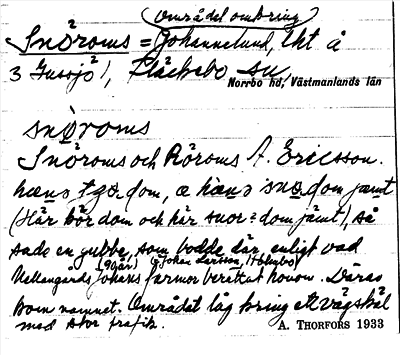 (området omkring)
Snöroms = Johannelund, tkt å
3 Gussjö), Fläckebo sn,
Norrbo hd, Västmanlands län
snöroms
Snöroms och Röroms A. Ericsson.
dom, dom jämt
(Här kör dom och här snor dom jämt), så
sade en gubbe, som bodde där, enligt vad
(90 år) (Johan Larsson, Holmbo)
Johans farmor berättat honom. Däras
kom namnet. Området låg kring ett vägskäl
med stor trafik.
A. THORFORS 1933